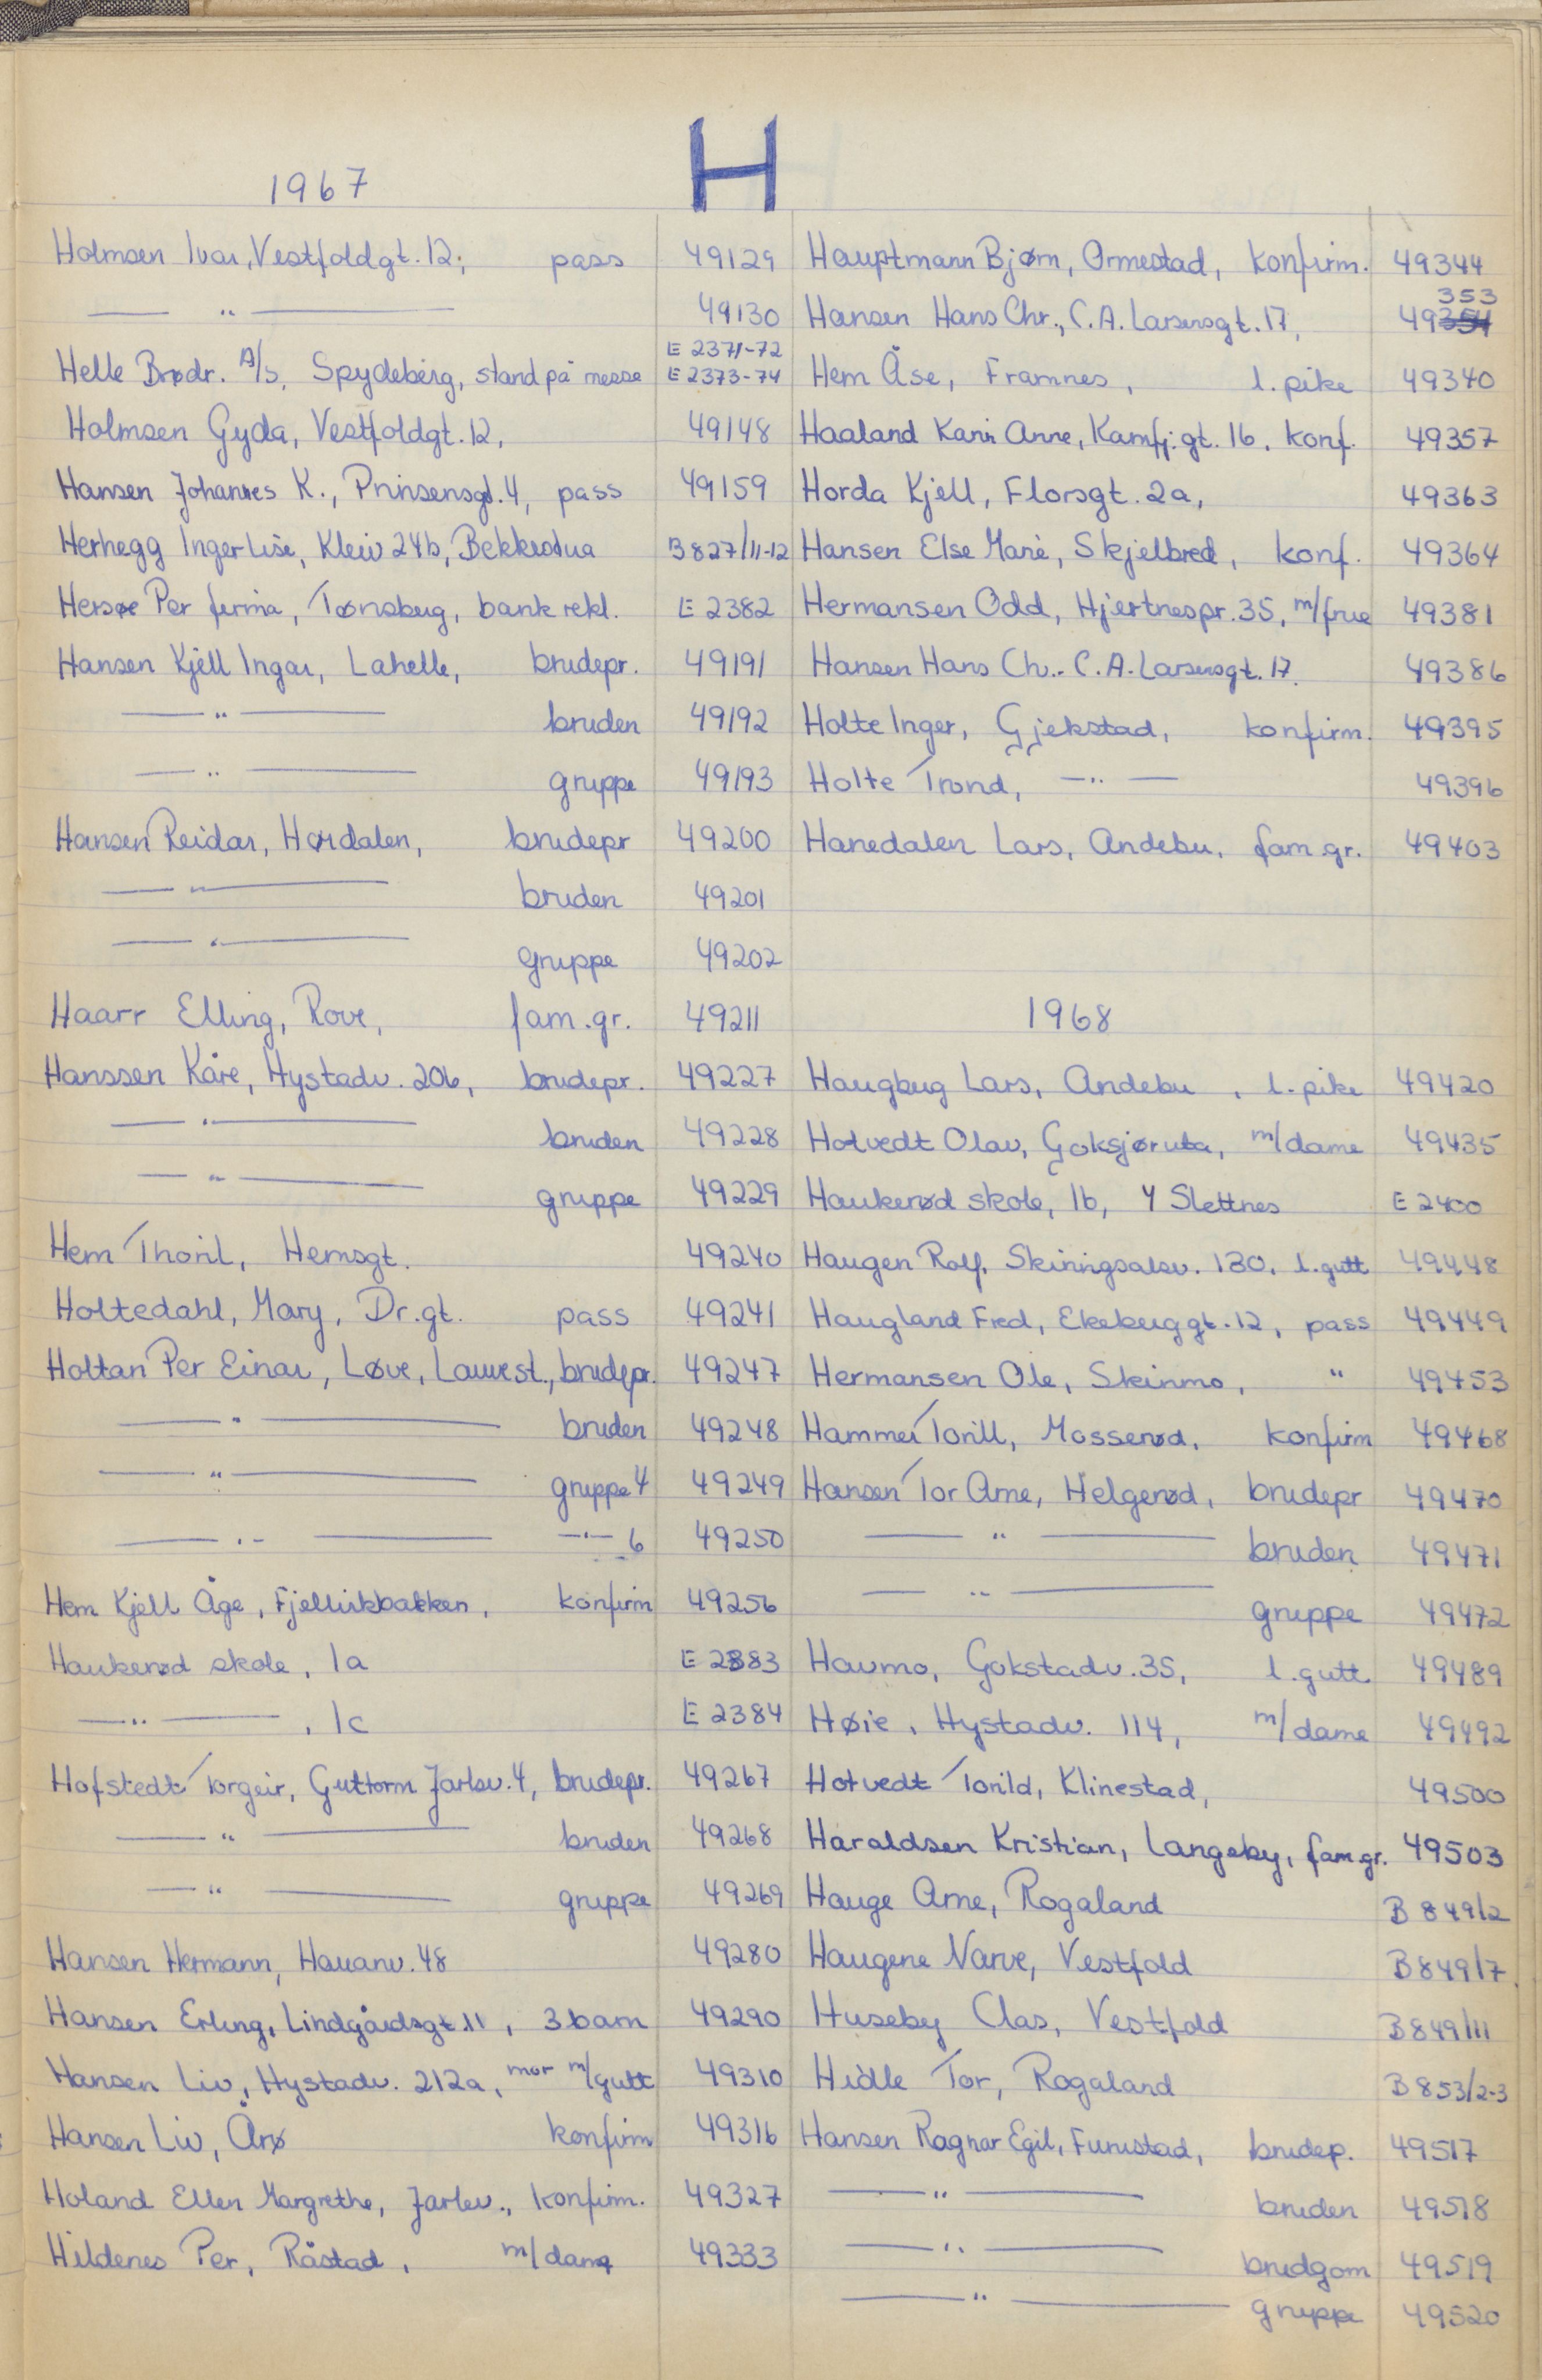 H
1967
Holmsen Ivar, Vestfoldgt. 12, pass 49129
—— " —— 49130
Helle Brødr. A/s, Spydeberg, stand på messe E 2371-72 E 2373-74
Holmsen Gyda, Vestfoldgt. 12, 49148
Hansen Johannes K., Prinsensgt. 4, pass 49159
Herhegg Inger Lise, Kleiv 24b, Bekkestua B 827/11-12
Hersøe Per firma, Tønsberg, bank rekl. E 2382
Hansen Kjell Ingar, Lahelle, brudepr. 49191
—— " —— bruden 49192
—— " —— gruppe 49193
Hansen Reidar, Hørdalen, brudepr 49200
—— " —— bruden 49201
—— " —— gruppe 49202
Haarr Elling, Rove, fam.gr. 49211
Hanssen Kåre, Hystadv. 206, brudepr. 49227
—— " —— bruden 49228
—— " —— gruppe 49229
Hem Thoril, Hemsgt. 49240
Holtedahl, Mary, Dr.gt. pass 49241
Holtan Per Einar, Løve, Lauvest., brudepr. 49247
—— " —— bruden 49248
—— " —— gruppe 4 49249
—— " —— —"— 6 49250
Hem Kjell Åge, Fjellvikbakken, konfirm 49256
Haukerød skole, 1a E 2383
—— " ——, 1c E 2384
Hofstedt Torgeir, Guttorm Jarlsv. 4, brudepr. 49267
—— " —— bruden 49268
—— " —— gruppe 49269
Hansen Hermann, Hauanv. 48 49280
Hansen Erling, Lindgårdsgt. 11, 3 barn 49290
Hansen Liv, Hystadv. 212a, mor m/gutt 49310
Hansen Liv, Årø konfirm 49316
Holand Ellen Margrethe, Jarlsv., konfirm. 49327
Hildenes Per, Råstad, m/dame 49333
Hauptmann Bjørn, Ormestad, konfirm. 49344
Hansen Hans Chr., C.A. Larsensgt. 17, 49354 353
Hem Åse, Framnes, l. pike 49340
Haaland Karin Anne, Kamfj.gt. 16, konf. 49357
Horda Kjell, Florsgt. 2a, 49363
Hansen Else Marie, Skjelbred, konf. 49364
Hermansen Odd, Hjertnespr. 35, m/frue 49381
Hansen Hans Ch.. C.A. Larsensgt. 17. 49386
Holte Inger, Gjekstad, konfirm. 49395
Holte Trond, — " — 49396
Hanedalen Lars, Andebu, fam.gr. 49403
1968
Haugberg Lars, Andebu, l. pike 49420
Hotvedt Olav, Goksjøruta, m/dame 49435
Haukerød skole, 1b, Y Slettnes E 2400
Haugen Rolf, Skiringsalsv. 130, l. gutt 49448
Haugland Fred, Ekeberggt. 12, pass 49449
Hermansen Ole, Skinmo, " 49453
Hammer Torill, Mosserød, konfirm 49468
Hansen Tor Arne, Helgerød, brudepr 49470
—— " —— bruden 49471
—— " —— gruppe 49472
Haumo, Gokstadv. 35, l. gutt 49489
Høie, Hystadv. 114, m/dame 49492
Hotvedt Torild, Klinestad, 49500
Haraldsen Kristian, Langeby, fam.gr. 49503
Hauge Arne, Rogaland B 849/2
Haugene Narve, Vestfold B 849/7
Huseby Clas, Vestfold B 849/11
Hidle Tor, Rogaland B 853/2-3
Hansen Ragnar Egil, Furustad, brudep. 49517
—— " —— bruden 49518
—— " —— brudgom 49519
—— " —— gruppe 49520